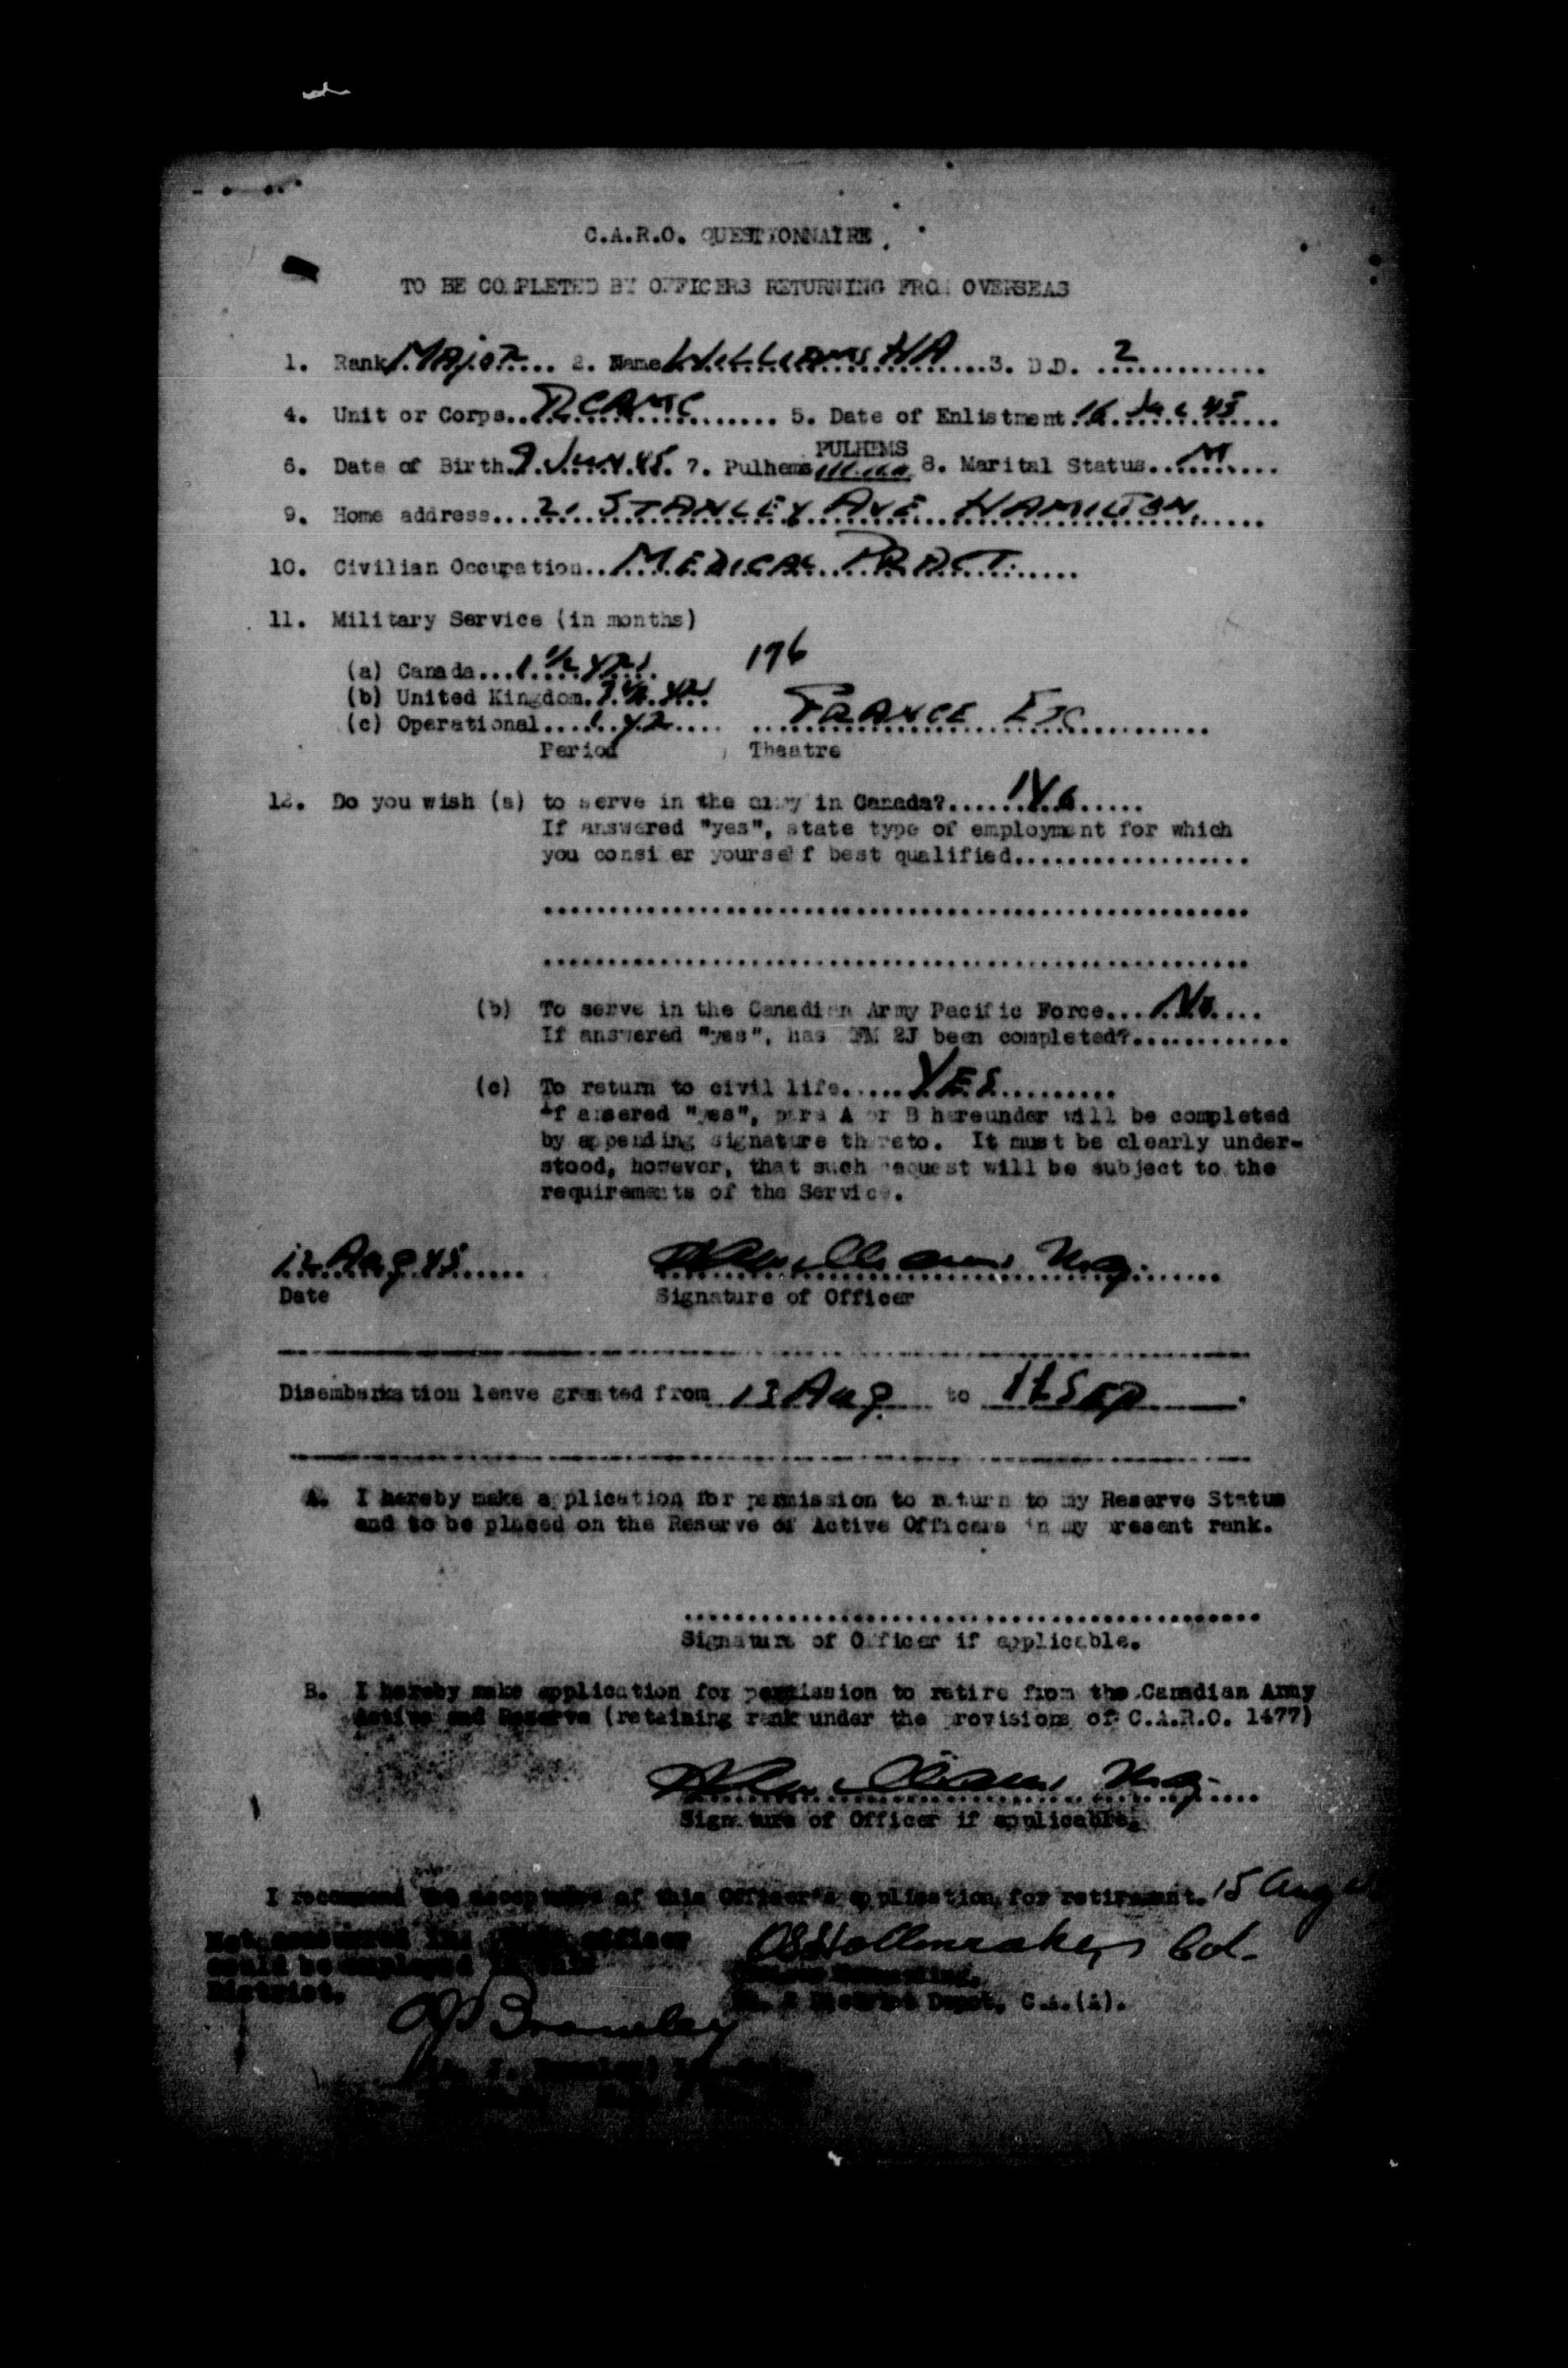 C.A.R.O. QUESTIONNAIRE
TO BE COMPLETED BY OFFICERS RETURNING FROM OVERSEAS
1. Rank Major 2. Name WILLIAMS HA 3. D.D. 2
4. Unit or Corps RCAMC 5. Date of Enlistment 16
PULHEMS
6. Date of Birth 9 JUN 7. Pulhems 8. Marital Status M
9. Home address STANLEY AVE HAMILTON
10. Civilian Occupation MEDICAL PRACT.
11. Military Service (in months)
(a) Canada 1 1/2 YRS 196
(b) United Kingdom
(c) Operational 1 YR FRANCE ETC
Period Theatre
12. Do you wish (a) to serve in the army in Canada? No
If answered "yes", state type of employment for which
you consider yourself best qualified
(b) To serve in the Canadian Army Pacific Force No
If answered "yes", has FM 2J been completed?
(c) To return to civil life YES
If ansered "yes", para A or B hereunder will be completed
by appending signature thereto. It must be clearly under-
stood, however, that such request will be subject to the
requirements of the Service.
12 Aug 45 HA Williams Maj.
Date Signature of Officer
Disembarkation leave granted from 13 Aug to Sep
A. I hereby make application for permission to return to my Reserve Status
and to be placed on the Reserve of Active Officers in my present rank.
Signature of Officer if applicable.
B. I hereby make application for permission to retire from the Canadian Army
Active and Reserve (retaining rank under the provisions of C.A.R.O. 1477)
HA Williams Maj.
Signature of Officer if applicable.
I recommend the acceptance of this Officer's application for retirement. 15 Aug
officer
could be employed in this
District.
Hollinrake Col.
Officer Commanding,
No. 2 District Depot, C.A.(A).
Bramley